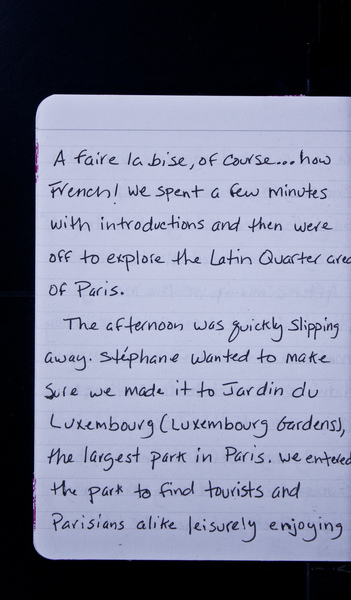 A faire la bise, of course... how
French! We spent a few minutes
with introductions and then were
off to explore the Latin Quarter area
of Paris.
The afternoon was quickly slipping
away. Stéphane wanted to make
sure we made it to Jardin du
Luxembourg (Luxembourg Gardens),
the largest park in Paris. We entered
the park to find tourists and
Parisians alike leisurely enjoying